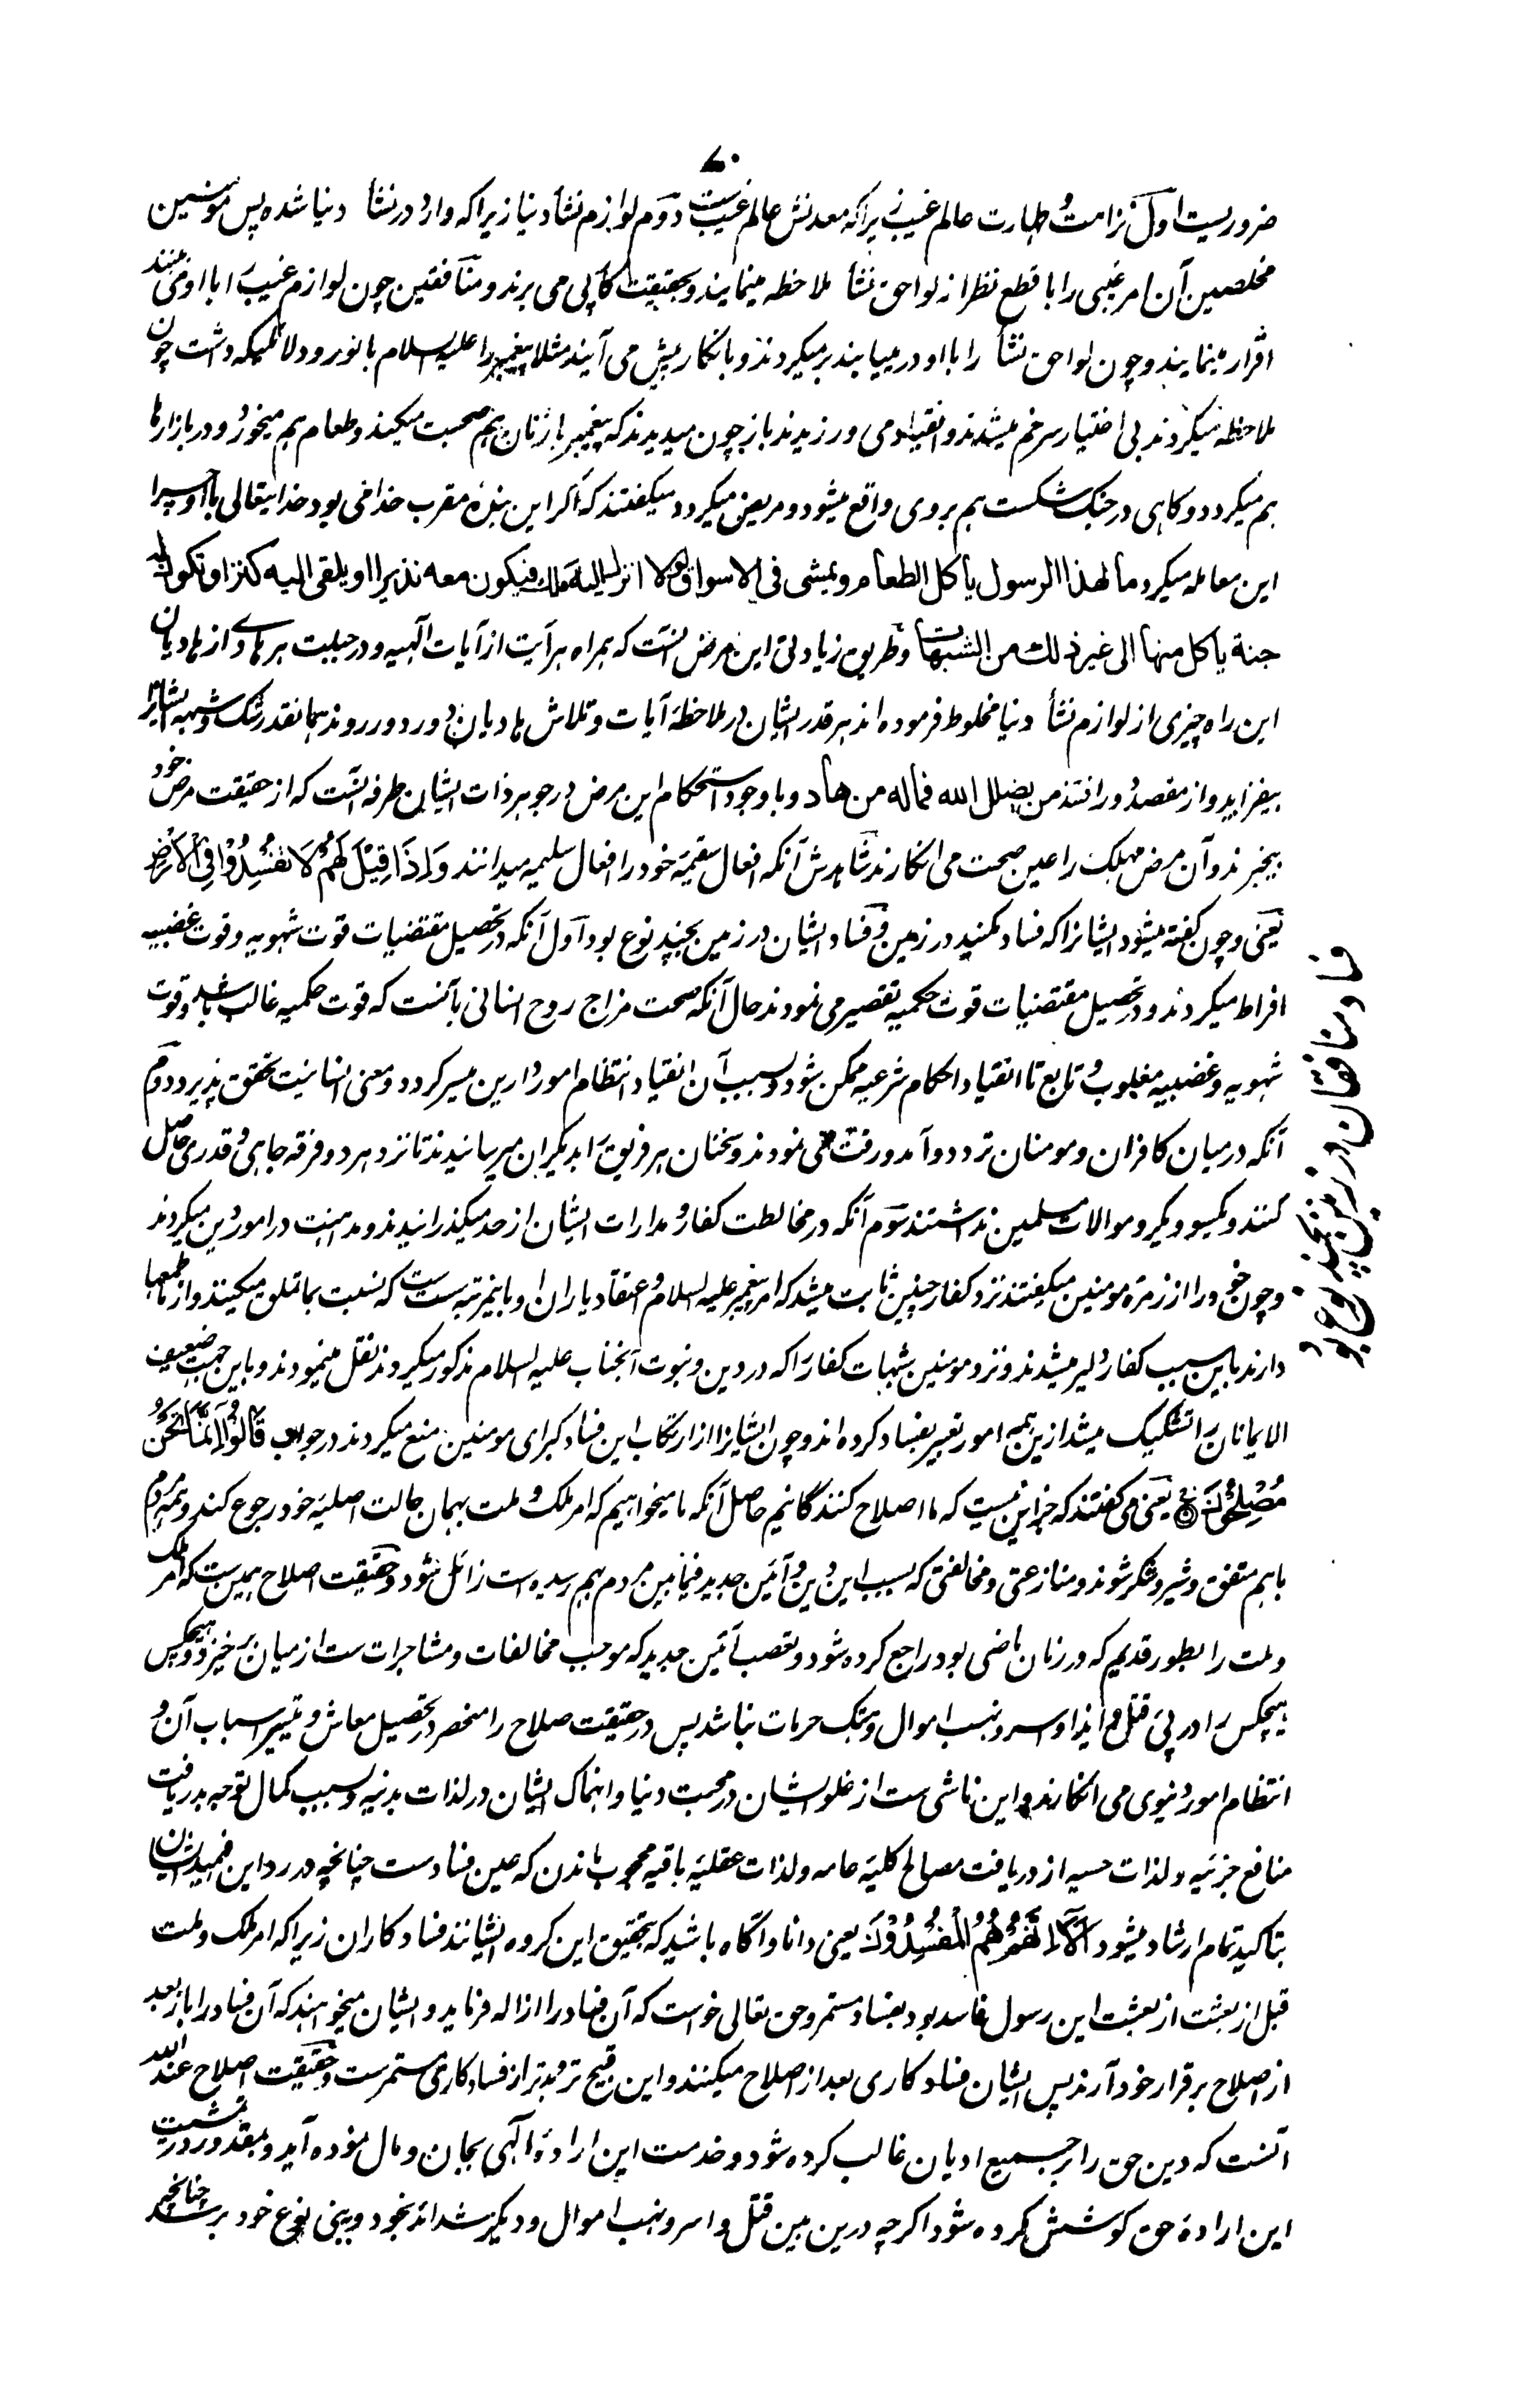 ۷۰
ضروریست اول نزاهت و طهارت عالم غیب زیرا که معدنش عالم غیب ست دوم لوازم نشأ دنیا زیرا که وارد در نشأ دنیا شده پس مومنین
مخلصین آن امر غیبی را با قطع نظر از لواحق نشأ ملاحظه مینمایند و بحقیقت کار پی می برند و منافقین چون لوازم غیب را با او می بینند
اقرار مینمایند و چون لواحق نشأ را با او در مییابند برمیگردند و بانکار پیش می آیند مثلا پیغمبر را علیه السلام با نور و دلائلیکه داشت چون
ملاحظه میکردند بی اختیار سر خم میشدند و انقیاد می ورزیدند باز چون میدیدند که پیغمبر با زنان هم صحبت میکند و طعام هم میخورد و در بازارها
هم میگردد و گاهی در جنگ شکست هم بروی واقع میشود و مریض میگردد میگفتند که اگر این بنده مقرب خدا می بود خدایتعالی با او چرا
این معامله میکرد ما لهذا الرسول یأکل الطعام و یمشی فی الاسواق لولا انزل الیه ملك فیکون معه نذیرا او یلقی الیه کنز او تکون له
جنة یأکل منها الی غیر ذلك من الشبهات و طریق زیادتی این مرض آنست که همراه هر آیت از آیات الهیه و در جبلت هر هادی از هادیان
این راه چیزی از لوازم نشأ دنیا مخلوط فرموده اند هر قدر ایشان در ملاحظه آیات و تلاش هادیان دور دور روند همانقدر شک و شبهه ایشانرا
بیفزاید و از مقصد دور افتند من یضلل الله فماله من هاد و با وجود استحکام این مرض در جوهر ذات ایشان طرفه آنست که از حقیقت مرض خود
بیخبرند و آن مرض مهلک را عین صحت می انگارند شاهدش آنکه افعال سقیمه خود را افعال سلیمه میدانند وَاِذَا قِیْلَ لَهُمْ لَا تُفْسِدُوْا فِی الْاَرْضِ
یعنی و چون گفته میشود ایشانرا که فساد مکنید در زمین و فساد ایشان در زمین بچند نوع بود اول آنکه در تحصیل مقتضیات قوت شهویه و قوت غضبیه
افراط میکردند و در تحصیل مقتضیات قوت حکمیه تقصیر می نمودند حال آنکه صحت مزاج روح انسانی بآنست که قوت حکمیه غالب باشد و قوت
شهویه و غضبیه مغلوب و تابع تا انقیاد احکام شرعیه ممکن شود و بسبب آن انقیاد انتظام امور دارین میسر گردد و معنی انسانیت تحقق پذیرد دوم
آنکه درمیان کافران و مومنان تردد و آمد و رفت می نمودند و سخنان هر فریق را بدیگران میرسانیدند تا نزد هر دو فرقه جاهی و قدری حاصل
کنند و یکسو و یکرو موالات مسلمین نداشتند سوم آنکه در مخالطت کفار و مدارات ایشان از حد میگذرانیدند و مداهنت در امور دین میکردند
و چون خود را از زمره مومنین میگفتند نزد کفار چنین ثابت میشد که امر پیغمبر علیه السلام و اعتقاد یاران او باینمرتبه سست ست که نسبت بما تملق میکنند و از ما طمعها
دارند باین سبب کفار دلیر میشدند و نزد مومنین شبهات کفار را که در دین و نبوت آنجناب علیه السلام مذکور میکردند نقل مینمودند و باین جهت ضعیف
الایمانان را تشکیک میشد ازین همه امور تعبیر بفساد کرده اند و چون ایشانرا از ارتکاب این فساد کبرای مومنین منع میکردند در جواب قَالُوْۤا اِنَّمَا نَحْنُ
مُصْلِحُوْنَ یعنی می گفتند که جز این نیست که ما اصلاح کنندگانیم حاصل آنکه ما میخواهیم که امر ملک و ملت بهمان حالت اصلیه خود رجوع کند و همه مردم
باهم متفق و شیر و شکر شوند و منازعتی و مخالفتی که بسبب این دین و آئین جدید فیمابین مردم بهم رسیده است زائل شود و حقیقت اصلاح همین ست که امر ملک
و ملت را بطور قدیم که در زمان ماضی بود راجع کرده شود و تعصب آئین جدید که موجب مخالفات و مشاجرات ست از میان برخیزد و هیچکس
هیچکس را در پی قتل و ایذا و اسر و نهب اموال و هتک حرمات نباشد پس در حقیقت صلاح را منحصر در تحصیل معاش و تیسیر اسباب آن و
انتظام امور دنیوی می انگارند و این ناشی ست از غلو ایشان در محبت دنیا و انهماک ایشان در لذات بدنیه و بسبب کمال توجه بدریافت
منافع جزئیه و لذات حسیه از دریافت مصالح کلیه عامه و لذات عقلیه باقیه محجوب ماندن که عین فساد ست چنانچه در رد این فهمید ایشان
بتاکید تمام ارشاد میشود اَلَاۤ اِنَّهُمْ هُمُ الْمُفْسِدُوْنَ یعنی دانا و آگاه باشید که بتحقیق این گروه ایشانند فساد کاران زیرا که امر ملک و ملت
قبل از بعثت از بعثت این رسول فاسد بود بفساد مستمر و حق تعالی خواست که آن فساد را ازاله فرماید و ایشان میخواهند که آن فساد را باز بعد
از اصلاح برقرار خود آرند پس ایشان فساد کاری بعد از اصلاح میکنند و این قبیح تر و بدتر از فساد کاری مستمر ست و حقیقت اصلاح عند الله
آنست که دین حق را بر جمیع ادیان غالب کرده شود و خدمت این اراده الهی بجان و مال نموده آید و بمقدور در تمشیت
این اراده حق کوشش کرده شود اگرچه درین بین قتل و اسر و نهب اموال و دیگر شدائد بخود و ببنی نوع خود برسد چنانچه
فساد منافقان در زمین بچند نوع بود